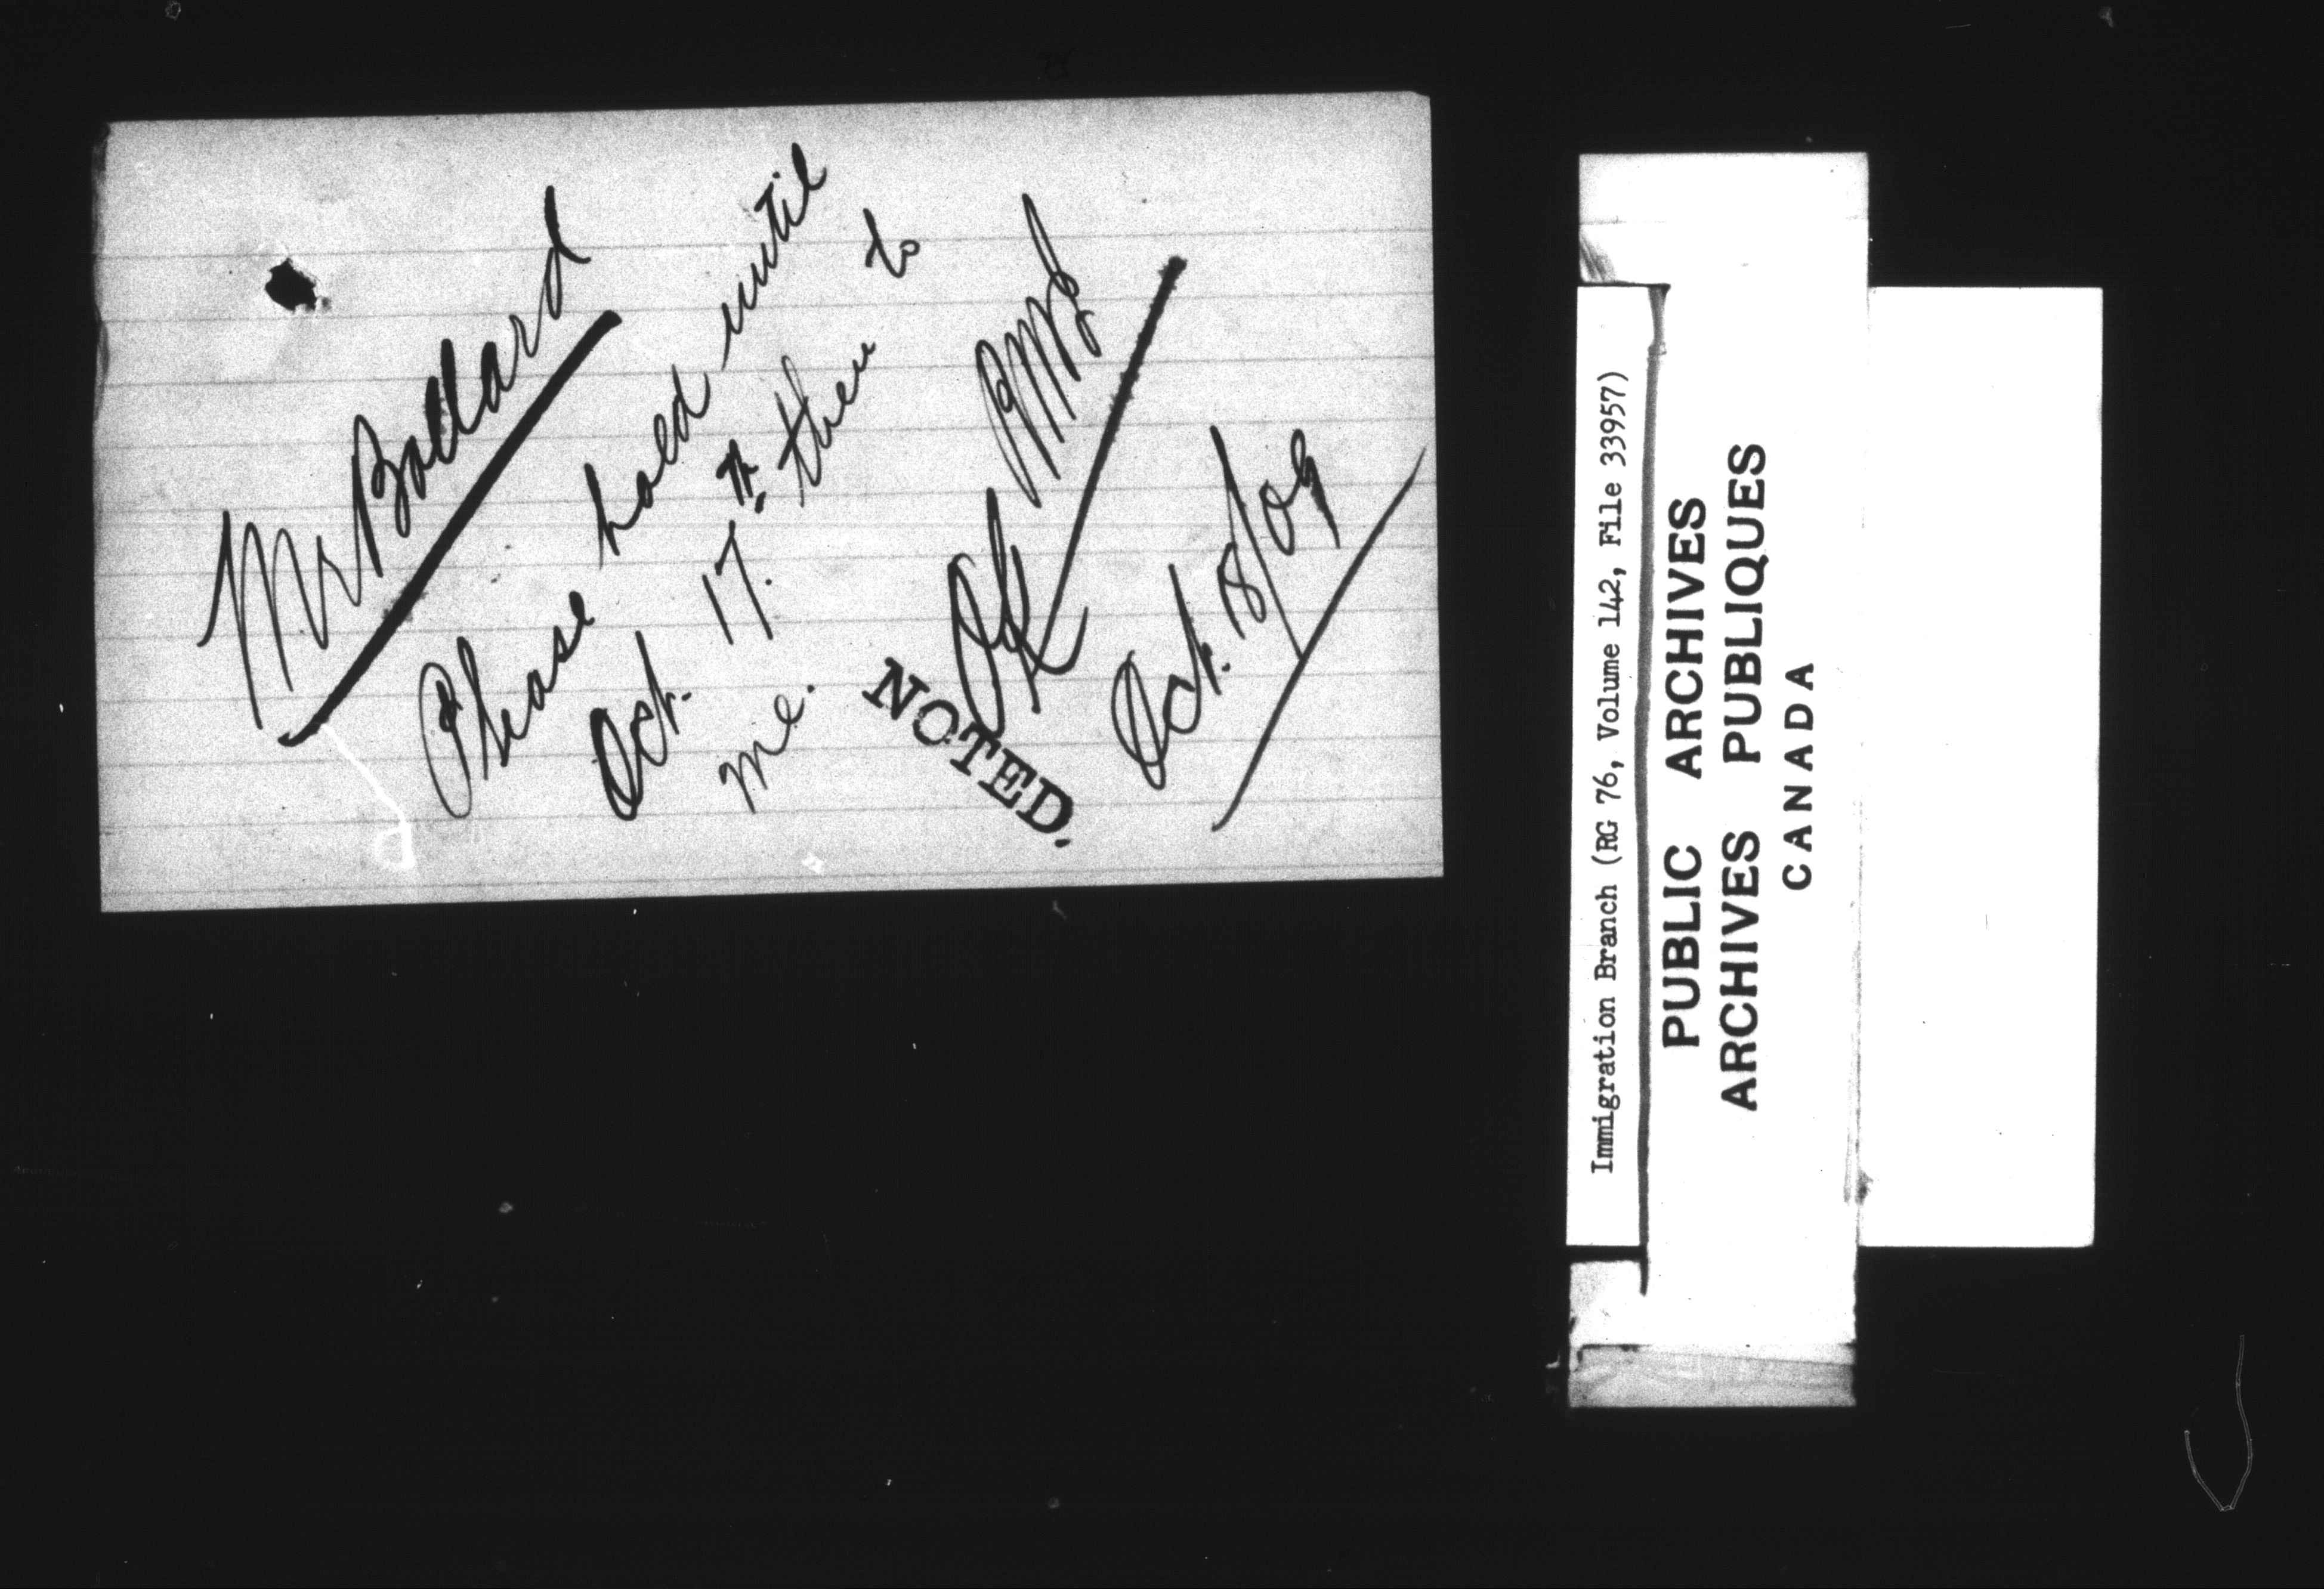 Mr Bollard
Please hold until
Oct. 17th. then to
me.
NOTED.
Oct. 18/09
Immigration Branch (RG 76, Volume 142, File 33957)
PUBLIC ARCHIVES
ARCHIVES PUBLIQUES
CANADA